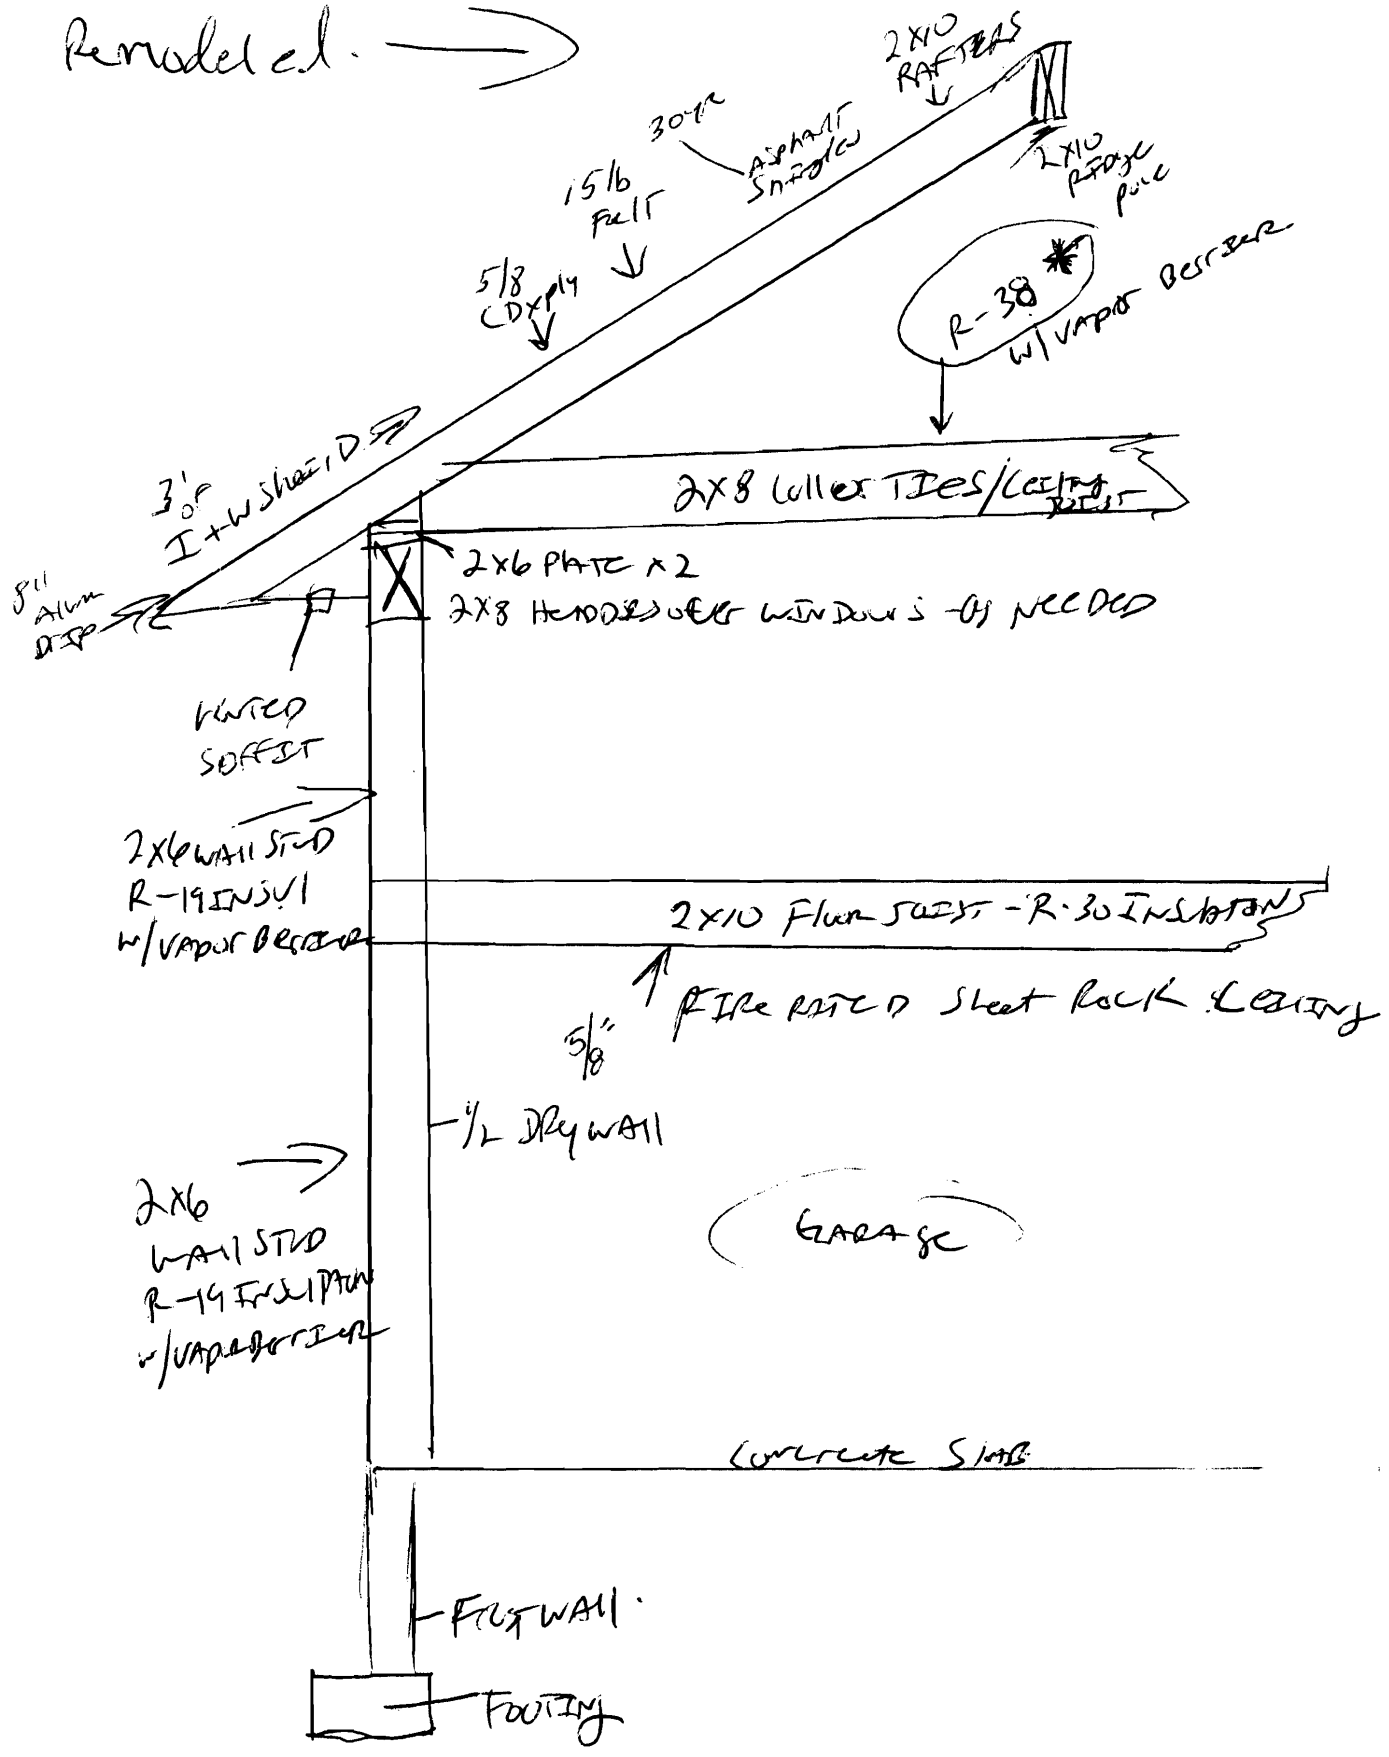 Remodeled.
2X10
RAFTERS
30YR
ASPHALT
Shingles
15lb
FelT
5/8
CDXply
2X10
RIDge
pole
R-38 *
w/VAPOr BerrIer
3' of
I+W SheilD
8"
Alum
DrIP
2X8 Coller TIES/CeilIng
JOIST
2X6 PlATE X2
2X8 HeADDers over WINDOWS - AS NEEDED
VENTED
SOFFIT
2X6 WAll STUD
R-19 INSUl
W/VAPOr BerrIer
2X10 Floor JOIST - R-30 INSulATIONS
5/8"
FIRe RATED Sheet Rock CeilINg
1/2 DRYWAll
2X6
WAll STUD
R-19 INSulATION
w/VAPOr BerrIer
GARAGE
Concrete SlAB
FRSTWAll.
FOOTINg